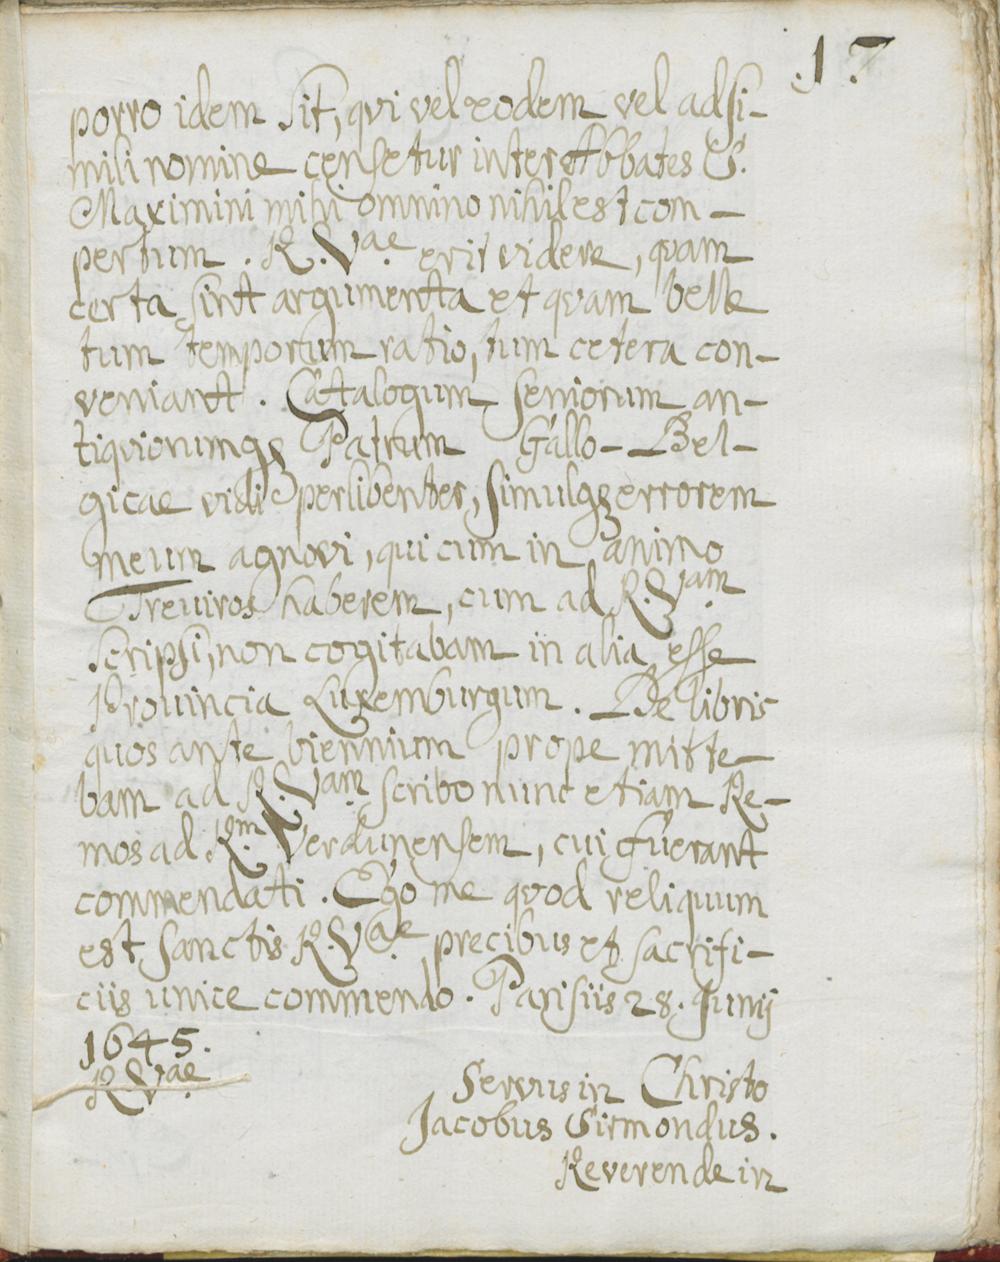 .17
porro idem sit, qui vel eodem vel adsi-
mili nomine censetur inter Abbates S.
Maximini mihi omnino nihil est com-
pertum. R. Vae erit videre, quam
certa sint argumenta et quam belle
tum temporum ratio, tum cetera con-
veniant. Catalogum seniorum an-
tiquiorumq; Patrum Gallo-Bel-
gicae vidi perlibenter, simulq; errorem
meum agnovi, qui cum in animo
Treuiros haberem, cum ad R. Vam
scripsi, non cogitabam in alia esse
Prouincia Luxemburgum. De libris
quos ante biennium prope mitte-
bam ad R. Vam scribo nunc etiam Re-
mos ad Rm. Verdunensem, cui fuerant
commendati. Ego me quod reliquum
est sanctis R. Vae precibus et sacrifi-
ciis unice commendo. Parisiis 28. Junij
1645.
R. Vae
Servus in Christo
Jacobus Sirmondus.
Reverende in